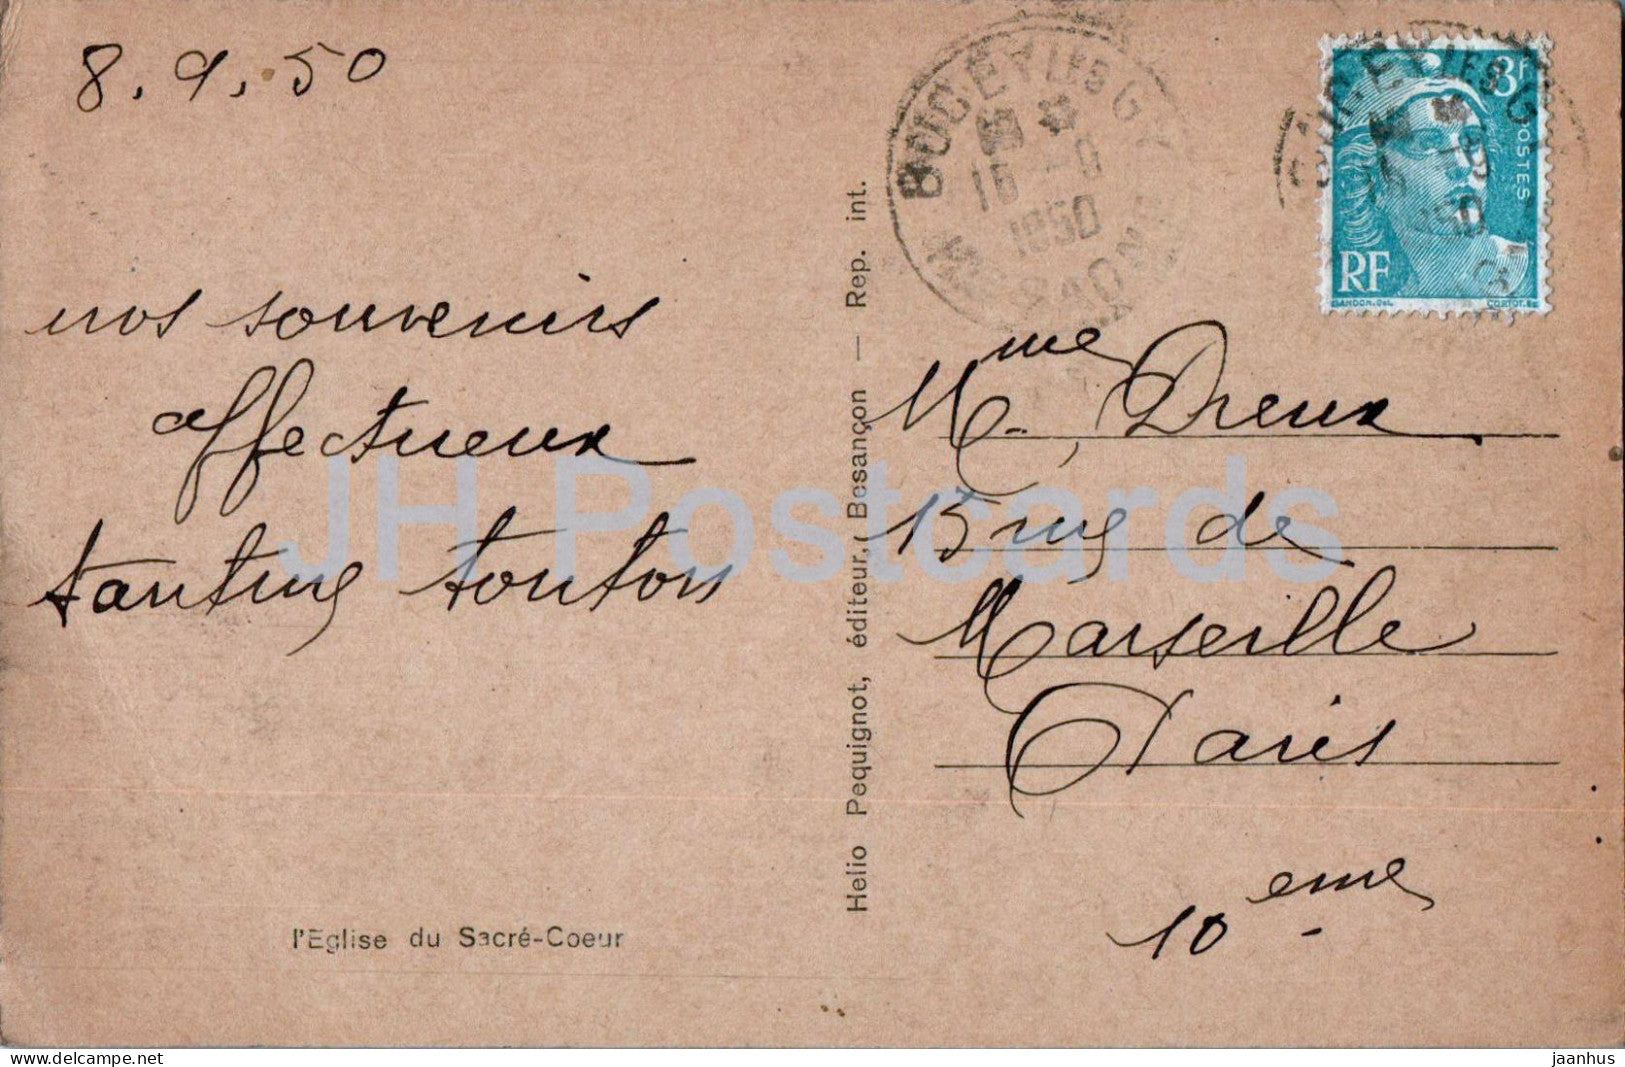 8.9.50
nos souvenirs
affectueux
tantine tonton
l'Eglise du Sacré-Coeur
Helio Pequignot, éditeur, Besançon — Rep. int.
BUCEY LES GY
16 -9
1950
Hte SAONE
3F
POSTES
RF
GANDON.Del.
CORTOT.Sc.
Mme Dreux
15 rue de
Marseille
Paris
10 eme
JH Postcards
jaanhus